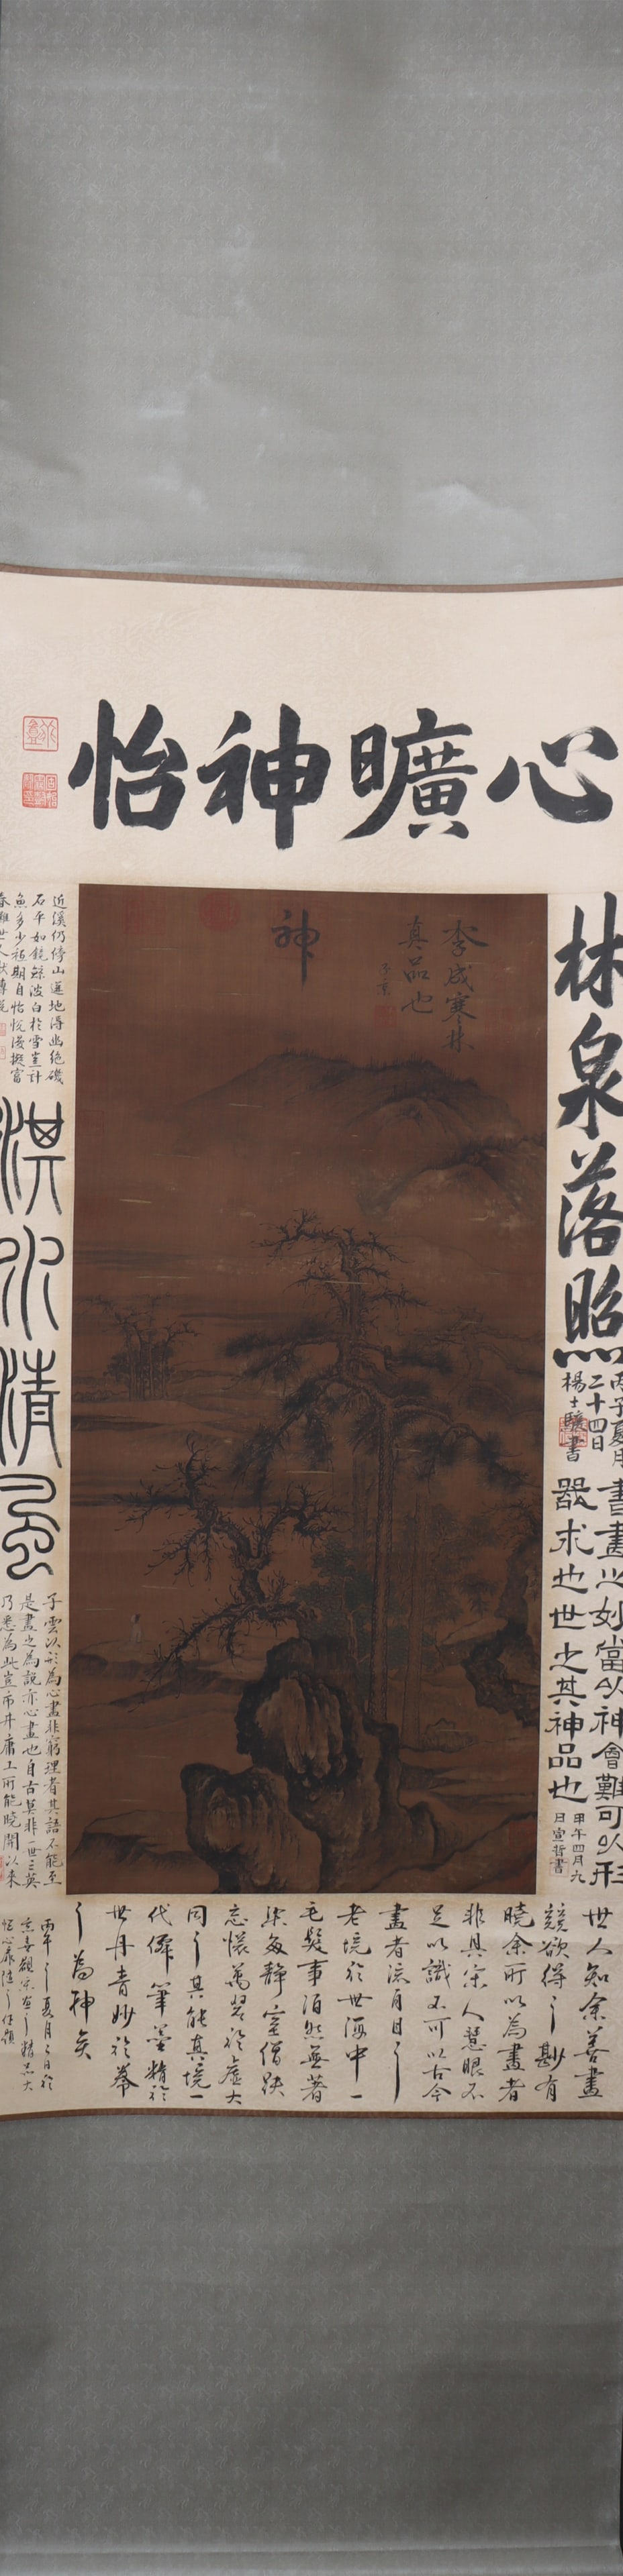 心曠神怡
李成寒林
真品也
子京
神
林泉落照
丙子夏月
二十四日
楊士驤書
書畫之妙當以神會難可以形
器求也世之其神品也
甲午四月九
日宣哲書
近溪仍傍山選地得幽絕磯
石平如鏡鯨波白於雪豈計
魚多少祗期自怡悅漫擬富
春難世人
淇水清風
子雲以形為心畫非窮理者其語不能至
是畫之為說亦心畫也自古莫非一世之英
乃悉為此豈市井庸工所能曉開以來
世人知余善畫
競欲得之尠有
曉余所以為畫者
非具宗人慧眼不
足以識不可以古今
畫者流月目之
老境於世海中一
毛髮事泊然無著
染每靜室僧趺
忘懷萬慮於虛大
同之其能真境一
代偉筆墨精於
世丹青妙於拳
之為神矣